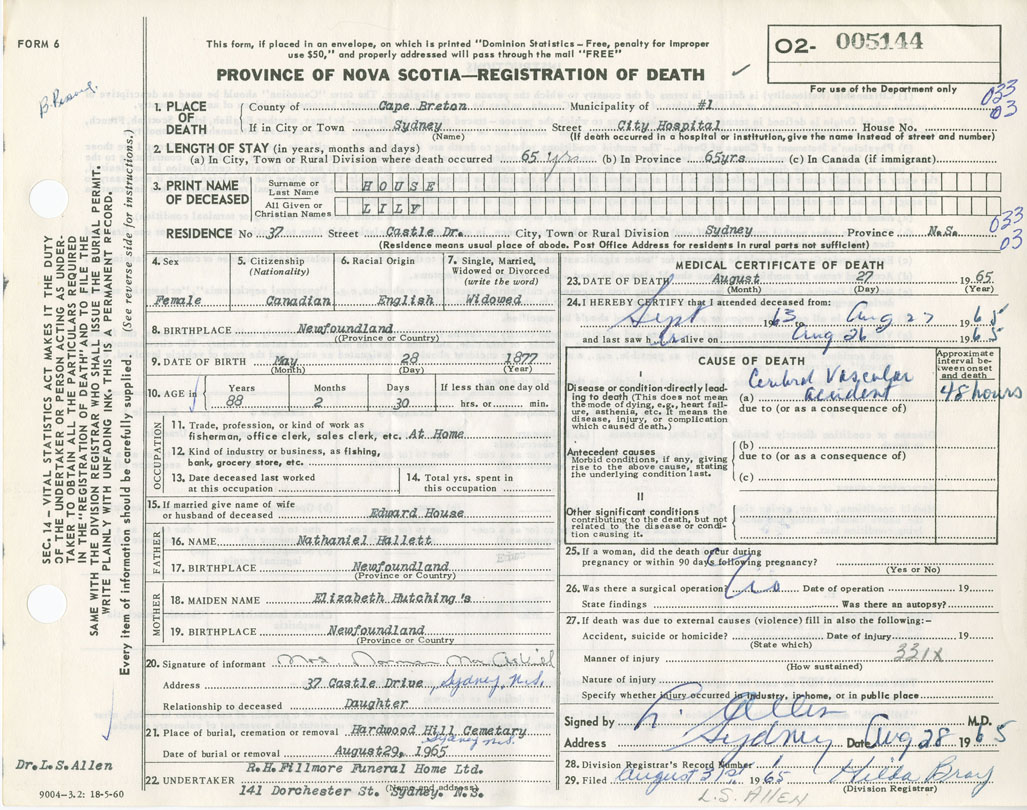 FORM 6
This form, if placed in an envelope, on which is printed "Dominion Statistics – Free, penalty for improper
use $50," and properly addressed will pass through the mail "FREE"
PROVINCE OF NOVA SCOTIA—REGISTRATION OF DEATH
O2- 005144
For use of the Department only
033
03
1. PLACE OF DEATH
County of Cape Breton Municipality of #1
If in City or Town Sydney Street City Hospital House No.
(Name) (If death occurred in a hospital or institution, give the name instead of street and number)
2. LENGTH OF STAY (in years, months and days)
(a) In City, Town or Rural Division where death occurred 65 yrs (b) In Province 65yrs (c) In Canada (if immigrant)
3. PRINT NAME OF DECEASED
Surname or Last Name HOUSE
All Given or Christian Names LILY
RESIDENCE No 37 Street Castle Dr. City, Town or Rural Division Sydney Province N.S.
(Residence means usual place of abode. Post Office Address for residents in rural parts not sufficient)
033
03
4. Sex
Female
5. Citizenship
(Nationality)
Canadian
6. Racial Origin
English
7. Single, Married,
Widowed or Divorced
(write the word)
Widowed
8. BIRTHPLACE Newfoundland
(Province or Country)
9. DATE OF BIRTH May 28 1877
(Month) (Day) (Year)
10. AGE in
Years Months Days If less than one day old
88 2 30 hrs. or min.
OCCUPATION
11. Trade, profession, or kind of work as
fisherman, office clerk, sales clerk, etc. At Home
12. Kind of industry or business, as fishing,
bank, grocery store, etc.
13. Date deceased last worked
at this occupation
14. Total yrs. spent in
this occupation
15. If married give name of wife
or husband of deceased Edward House
FATHER
16. NAME Nathaniel Hallett
17. BIRTHPLACE Newfoundland
(Province or Country)
MOTHER
18. MAIDEN NAME Elizabeth Hutching's
19. BIRTHPLACE Newfoundland
(Province or Country
20. Signature of informant Mrs Norman
Address 37 Castle Drive, Sydney, N.S.
Relationship to deceased Daughter
21. Place of burial, cremation or removal Hardwood Hill Cemetary
Sydney N.S.
Date of burial or removal August 29, 1965
22. UNDERTAKER R.H. Fillmore Funeral Home Ltd.
(Name and address)
141 Dorchester St. Sydney. N.S.
MEDICAL CERTIFICATE OF DEATH
23. DATE OF DEATH August 27 1965
(Month) (Day) (Year)
24. I HEREBY CERTIFY that I attended deceased from:
Sept 1963 to Aug 27 1965
and last saw h alive on Aug 26 1965
CAUSE OF DEATH
Approximate
interval be-
tween onset
and death
I
Disease or condition directly lead-
ing to death (This does not mean
the mode of dying, e.g., heart fail-
ure, asthenia, etc. It means the
disease, injury, or complication
which caused death.)
(a) Cerebral Vascular accident 48 hours
due to (or as a consequence of)
Antecedent causes
Morbid conditions, if any, giving
rise to the above cause, stating
the underlying condition last.
(b)
due to (or as a consequence of)
(c)
II
Other significant conditions
contributing to the death, but not
related to the disease or condi-
tion causing it.
25. If a woman, did the death occur during
pregnancy or within 90 days following pregnancy? No
(Yes or No)
26. Was there a surgical operation? Date of operation 19
State findings Was there an autopsy?
27. If death was due to external causes (violence) fill in also the following:-
Accident, suicide or homicide? Date of injury 19
(State which)
Manner of injury 331X
(How sustained)
Nature of injury
Specify whether injury occurred in industry, in home, or in public place
Signed by L. Allen M.D.
Address Sydney Date Aug 28 1965
28. Division Registrar's Record Number
29. Filed August 31st 1965 Hilda Bray
(Division Registrar)
L.S. ALLEN
SEC. 14 – VITAL STATISTICS ACT MAKES IT THE DUTY
OF THE UNDERTAKER OR PERSON ACTING AS UNDER-
TAKER "TO OBTAIN ALL THE PARTICULARS REQUIRED
IN THE "REGISTRATION OF DEATH" AND TO FILE THE
SAME WITH THE DIVISION REGISTRAR WHO SHALL ISSUE THE BURIAL PERMIT.
WRITE PLAINLY WITH UNFADING INK. THIS IS A PERMANENT RECORD.
Every item of information should be carefully supplied. (See reverse side for instructions.)
Dr. L.S. Allen
9004-3.2: 18-5-60